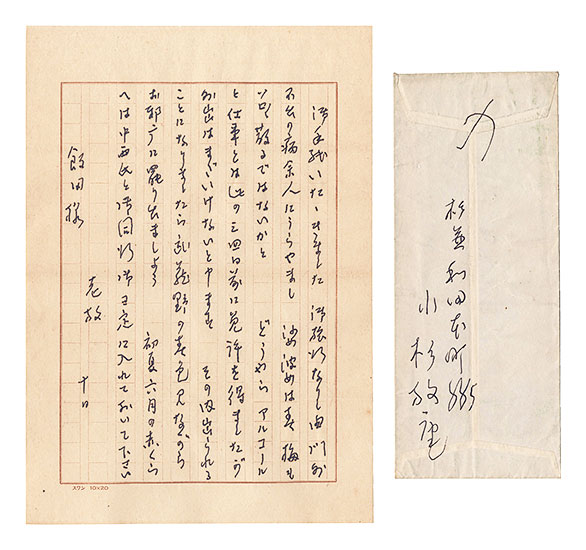 御手紙いたゞきました 御旅行
不出の病余人にうらやまし 娑婆は春 梅も
散るではないかと どうやらアルコール
と仕事とは此の三四日前に免許を得ましたが
外出はまだいけないと申ます その内出られる
ことになりましたら武蔵野の春色見ながら
お邪广に罷り出ましよう 初夏六月の赤くら
へは中西氏と御同行御予定に入れておいて下さい
老放 十日
飯田様
スワン 10×20
〆
杉並和田本町865
小杉放庵